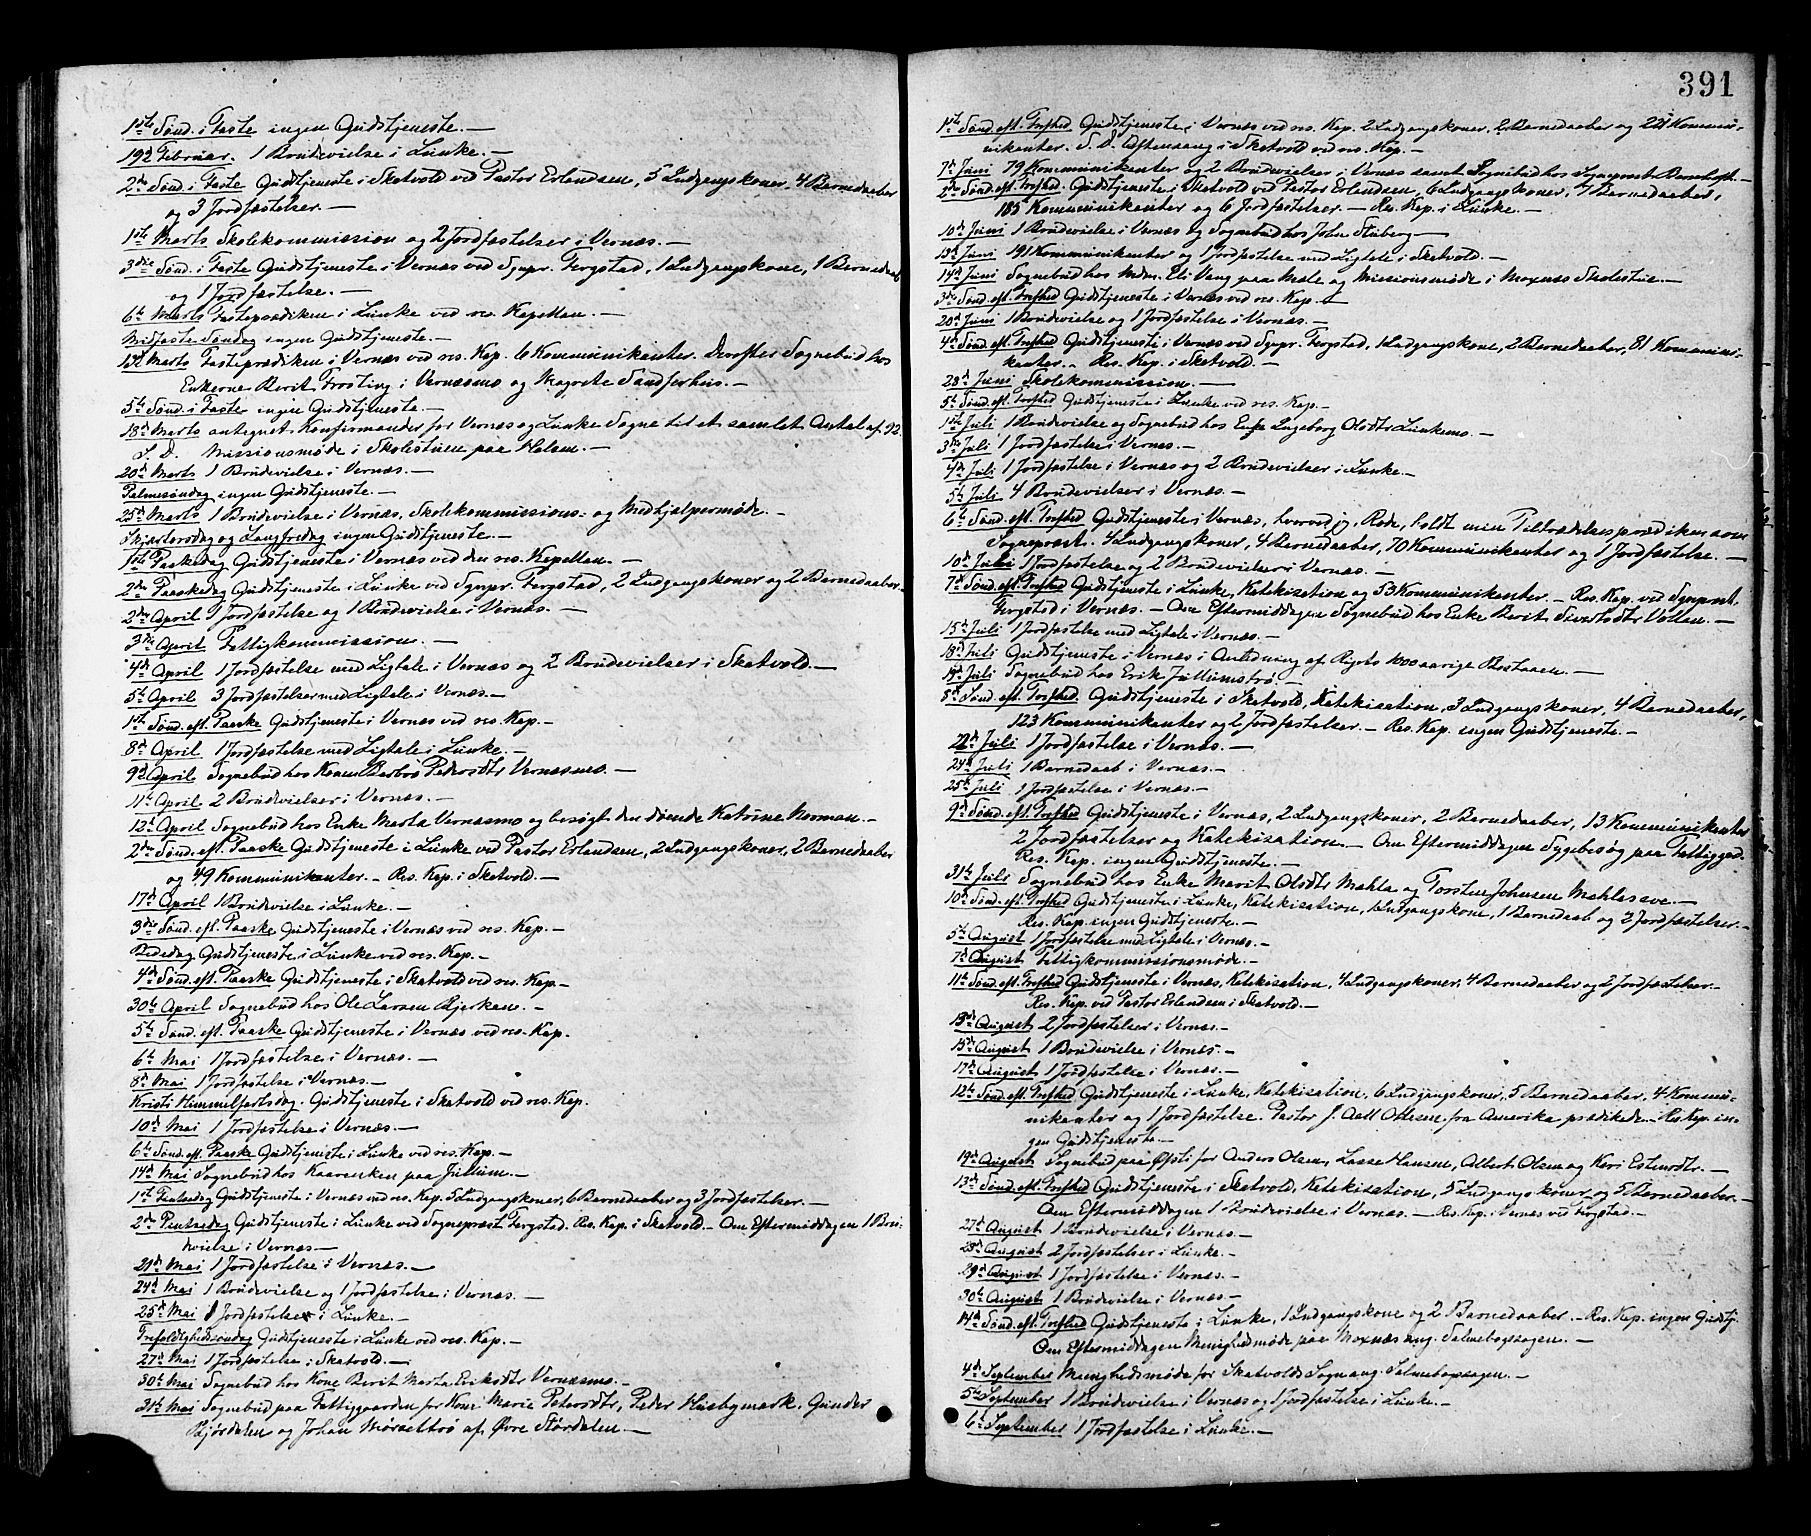 1ste Sønd. i Faste ingen Gudstjeneste. —
19d Februar. 1 Brudevielse i Lünke. —
2den Sønd. i Faste Gudstjeneste i Skatvold ved Pastor Erlandsen, 5 Indgangskoner, 4 Barnedaaber
og 3 Jordfæstelser. —
1ste Marts Skolekommission og 2 Jordfæstelser i Vernæs. —
3die Sønd. i Faste Gudstjeneste i Vernæs ved Sgnpr. Fergstad, 1 Indgangskone, 1 Barnedaab
og 1 Jordfæstelse. —
6te Marts Fasteprædiken i Lünke ved res. Kapellan. —
Midfaste Søndag ingen Gudstjeneste. —
13d Marts Fasteprædiken i Vernæs ved res. Kap. 6 Kommunikanter. Derefter Sognebud hos
Enkerne Berit Frosting i Vernæsmo og Magrete Sandferhus. —
5te Sønd. i Faste ingen Gudstjeneste. —
18d Marts antegnet Konfirmander for Vernæs og Lünke Sogne til et samlet Antal af 92.
S. D. Missionsmøde i Skolestuen paa Halsen. —
20d Marts 1 Brudevielse i Vernæs. —
Palmesøndag ingen Gudstjeneste. —
25d Marts 1 Brudevielse i Vernæs, Skolekommissions- og Medhjælpermøde. —
Skjærtorsdag og Langfredag ingen Gudstjeneste. —
1ste Paaskedag Gudstjeneste i Vernæs ved den res. Kapellan. —
2den Paaskedag Gudstjeneste i Lünke ved Sgnpr. Fergstad, 2 Indgangskoner og 2 Barnedaaber. —
2den April 1 Jordfæstelse og 1 Brudevielse i Vernæs. —
3die April Fattigkommission. —
4d April 1 Jordfæstelse med Ligtale i Vernæs og 2 Brudevielser i Skatvold. —
5te April 3 Jordfæstelser med Ligtale i Vernæs. —
1ste Sønd. eft. Paaske Gudstjeneste i Vernæs ved res. Kap. —
8d April 1 Jordfæstelse med Ligtale i Lünke. —
9d April Sognebud hos Konen Barbro Pedersdtr Vernæsmo. —
11te April 2 Brudevielser i Vernæs. —
12te April Sognebud hos Enke Marta Vernæsmo og besøgt den døende Katrine Norman. —
2den Sønd. eft. Paaske Gudstjeneste i Lünke ved Pastor Erlandsen, 2 Indgangskoner, 2 Barnedaaber
og 49 Kommunikanter. — Res. Kap. i Skatvold. —
17d April 1 Brudevielse i Lünke. —
3die Sønd. eft. Paaske Gudstjeneste i Vernæs ved res. Kap. —
Bededag Gudstjeneste i Lünke ved res. Kap. —
4d Sønd. eft. Paaske Gudstjeneste i Skatvold ved res. Kap. —
30te April Sognebud hos Ole Larsen Bjerkan. —
5te Sønd. eft. Paaske Gudstjeneste i Vernæs ved res. Kap.
6te Mai 1 Jordfæstelse i Vernæs. —
8d Mai 1 Jordfæstelse i Vernæs. —
Kristi Himmelfartsdag. Gudstjeneste i Skatvold ved res. Kap.
10d Mai 1 Jordfæstelse i Vernæs. —
6te Sønd. eft. Paaske Gudstjeneste i Lünke ved res. Kap. —
14d Mai Sognebud hos Kaarenken paa Jullum. —
1ste Pintsedag Gudstjeneste i Vernæs ved res. Kap. 5 Indgangskoner, 6 Barnedaaber og 3 Jordfæstelser. —
2den Pintsedag Gudstjeneste i Lünke ved Sogneprest Fergstad. Res. Kap. i Skatvold. — Om Eftermiddagen 1 Bru-
devielse i Vernæs —
21d Mai 1 Jordfæstelse i Vernæs. —
24d Mai 1 Brudevielse og 1 Jordfæstelse i Vernæs. —
25d Mai 1 Jordfæstelse i Lünke. —
Trefoldighedssøndag Gudstjeneste i Lünke ved res. Kap. —
27d Mai 1 Jordfæstelse i Skatvold. —
30te Mai Sognebud hos Kone Berit Marta Eriksdtr Vernæsmo. —
31te Mai Sognebud paa Fattiggaarden for Kone Marie Petersdtr, Peder Husbymark, Gunder
Bjørdalen og Johan Mørsettrø af Øvre Størdalen. —
391
1ste Sønd. eft. Trefhed Gudstjeneste i Vernæs ved res. Kap. 2 Indgangskoner, 2 Barnedaaber og 221 Kommu-
nikanter. S. D. Aftensang i Skatvold ved res. Kap. —
7d Juni 79 Kommunikanter og 2 Brudevielser i Vernæs samt Sognebud hos Sgneprest Bernhoft. —
2den Sønd. eft. Trefhed. Gudstjeneste i Skatvold ved Pastor Erlandsen, 6 Indgangskoner, 7 Barnedaaber,
185 Kommunikanter og 6 Jordfæstelser. — Res. Kap. i Lünke. —
10d Juni 1 Brudevielse i Vernæs og Sognebud hos John Stuberg —
13d Juni 191 Kommunikanter og 1 Jordfæstelse med Ligtale i Skatvold. —
14d Juni Sognebud hos Mdm. Eli Vang paa Mæle og Missionsmøde i Moxnæs Skolestue. —
3die Sønd. eft. Trefhed Gudstjeneste i Vernæs ved res. Kap. —
20d Juni 1 Brudevielse og 1 Jordfæstelse i Vernæs. —
4d Sønd. eft. Trefhed Gudstjeneste i Vernæs ved Sgnpr. Fergstad, 1 Indgangskone, 2 Barnedaaber, 81 Kommuni-
kanter. — Res. Kap. i Skatvold. —
28d Juni Skolekommission. —
5te Sønd. eft. Trefhed Gudstjeneste i Lünke ved res. Kap. —
1ste Juli 1 Brudevielse og Sognebud hos Enke Ingeborg Olsdtr Lünkemo. —
3die Juli 1 Jordfæstelse i Vernæs. —
4d Juli 1 Jordfæstelse i Vernæs og 2 Brudevielser i Lünke. —
5te Juli 4 Brudevielser i Vernæs. —
6te Sønd. eft. Trefhed Gudstjeneste i Vernæs, hvorved jeg, Rode, holdt min Tiltrædelsesprædiken som
Sogneprest. 4 Indgangskoner, 4 Barnedaaber, 70 Kommunikanter og 1 Jordfæstelse. —
10d Juli 1 Jordfæstelse og 2 Brudevielser i Vernæs. —
7d Sønd. eft. Trefhed Gudstjeneste i Lünke, Katekisation og 53 Kommunikanter. — Res. Kap. ved Sgnprest
Fergstad i Vernæs. — Om Eftermiddagen Sognebud hos Enke Berit Sivertsdtr Vollan. —
15d Juli 1 Jordfæstelse med Ligtale i Vernæs. —
18d Juli Gudstjeneste i Vernæs i Anledning af Rigets 1000aarige Bestaaen. —
19d Juli Sognebud hos Erik Jullumstrø. —
8d Sønd. eft. Trefhed. Gudstjeneste i Skatvold, Katekisation, 3 Indgangskoner, 4 Barnedaaber,
123 Kommunikanter og 2 Jordfæstelser. — Res. Kap. ingen Gudstjeneste. —
22d Juli 1 Jordfæstelse i Vernæs. —
24d Juli 1 Barnedaab i Vernæs. —
25d Juli 1 Jordfæstelse i Vernæs. —
9d Sønd. eft. Trefhed Gudstjeneste i Vernæs, 2 Indgangskoner, 2 Barnedaaber, 13 Kommunikanter
2 Jordfæstelser og Katekisation. — Om Eftermiddagen Sygebesøg paa Fattiggrd. —
Res. Kap. ingen Gudstjeneste. —
31te Juli Sognebud hos Enke Marit Olsdtr Mahla og Torsten Johnsen Mahlasave. —
10d Sønd. eft. Trefhed Gudstjeneste i Lünke, Katekisation, 1 Indgangskone, 1 Barnedaab og 2 Jordfæstelser. —
Res. Kap. ingen Gudstjeneste. —
5te August 1 Jordfæstelse med Ligtale i Vernæs. —
7d August Fattigkommissionsmøde. —
11te Sønd. eft. Trefhed Gudstjeneste i Vernæs, Katekisation, 4 Indgangskoner, 4 Barnedaaber og 2 Jordfæstelser. —
Res. Kap. ved Pastor Erlandsen i Skatvold. —
13d August 2 Jordfæstelser i Vernæs. —
15d August 1 Brudevielse i Vernæs. —
17d August 1 Jordfæstelse i Vernæs. —
12te Sønd. eft. Trefhed Gudstjeneste i Lünke, Katekisation, 6 Indgangskoner, 5 Barnedaaber, 4 Kommu-
nikanter og 1 Jordfæstelse. Pastor J. Aall Ottesen fra Amerika prædikede. — Res. Kap. in-
gen Gudstjeneste. —
19d August Sognebud paa Øfsti for Anders Olsen, Lasse Hansen, Albert Olsen og Kari Estensdtr. —
13d Sønd. eft. Trefhed Gudstjeneste i Skatvold, Katekisation, 5 Indgangskoner og 5 Barnedaaber. —
Om Eftermiddagen 1 Brudevielse i Vernæs. — Res. Kap. i Vernæs ved Fergstad. —
27d August 1 Brudevielse i Vernæs. —
28d August 2 Jordfæstelser i Lünke. —
29d August 1 Jordfæstelse i Vernæs. —
30te August 1 Brudevielse i Vernæs —
14d Sønd. eft. Trefhed Gudstjeneste i Lünke, 1 Indgangskone og 2 Barnedaaber. — Res. Kap. ingen Gudstj.
Om Eftermiddagen Menighedsmøde paa Moxnæs ang. Salmebogsagen. —
4d September Menighedsmøde for Skatvolds Sogn ang. Salmebogsagen. —
5te September 1 Brudevielse i Vernæs og 1 Jordfæstelse i Lünke. —
6te September 1 Jordfæstelse i Lünke. —